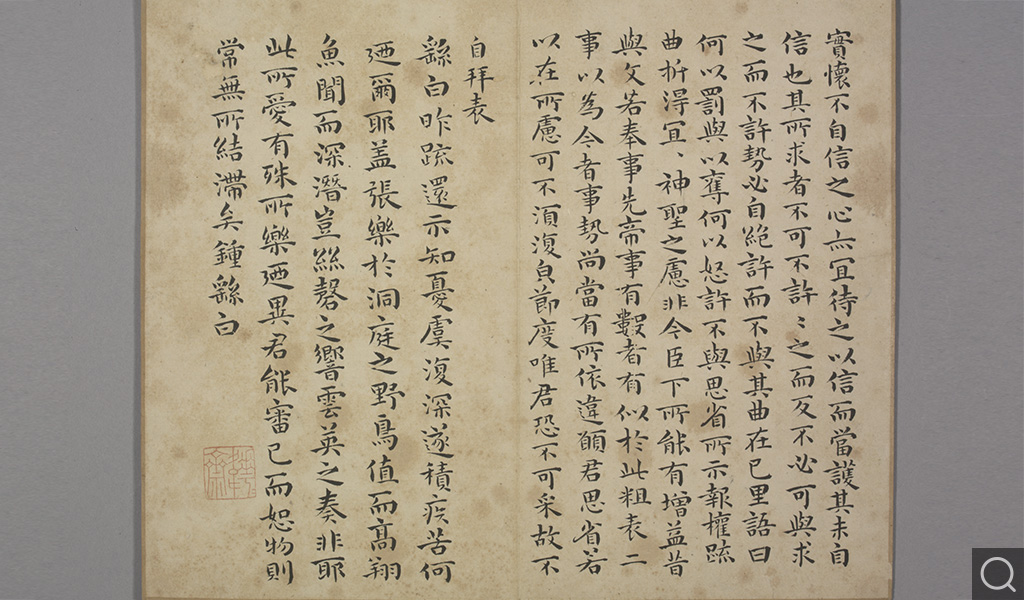 實懷不自信之心亦冝待之以信而當護其未自
信也其所求者不可不許〻之而反不必可與求
之而不許勢必自絕許而不與其曲在已里語曰
何以罰與以奪何以怒許不與思省所示報權疏
曲折得冝、神聖之慮非今臣下所能有增益昔
與文若奉事先帝事有數者有似於此粗表二
事以為今者事勢尚當有所依違願君思省若
以在所慮可不須復皃節度唯君恐不可采故不
自拜表
繇白昨疏還示知憂虞復深遂積疾苦何
迺爾耶盖張樂於洞庭之野鳥值而高翔
魚聞而深潛豈絲磬之響雲英之奏非耶
此所愛有殊所樂迺異君能審已而恕物則
常無所結滯矣鍾繇白